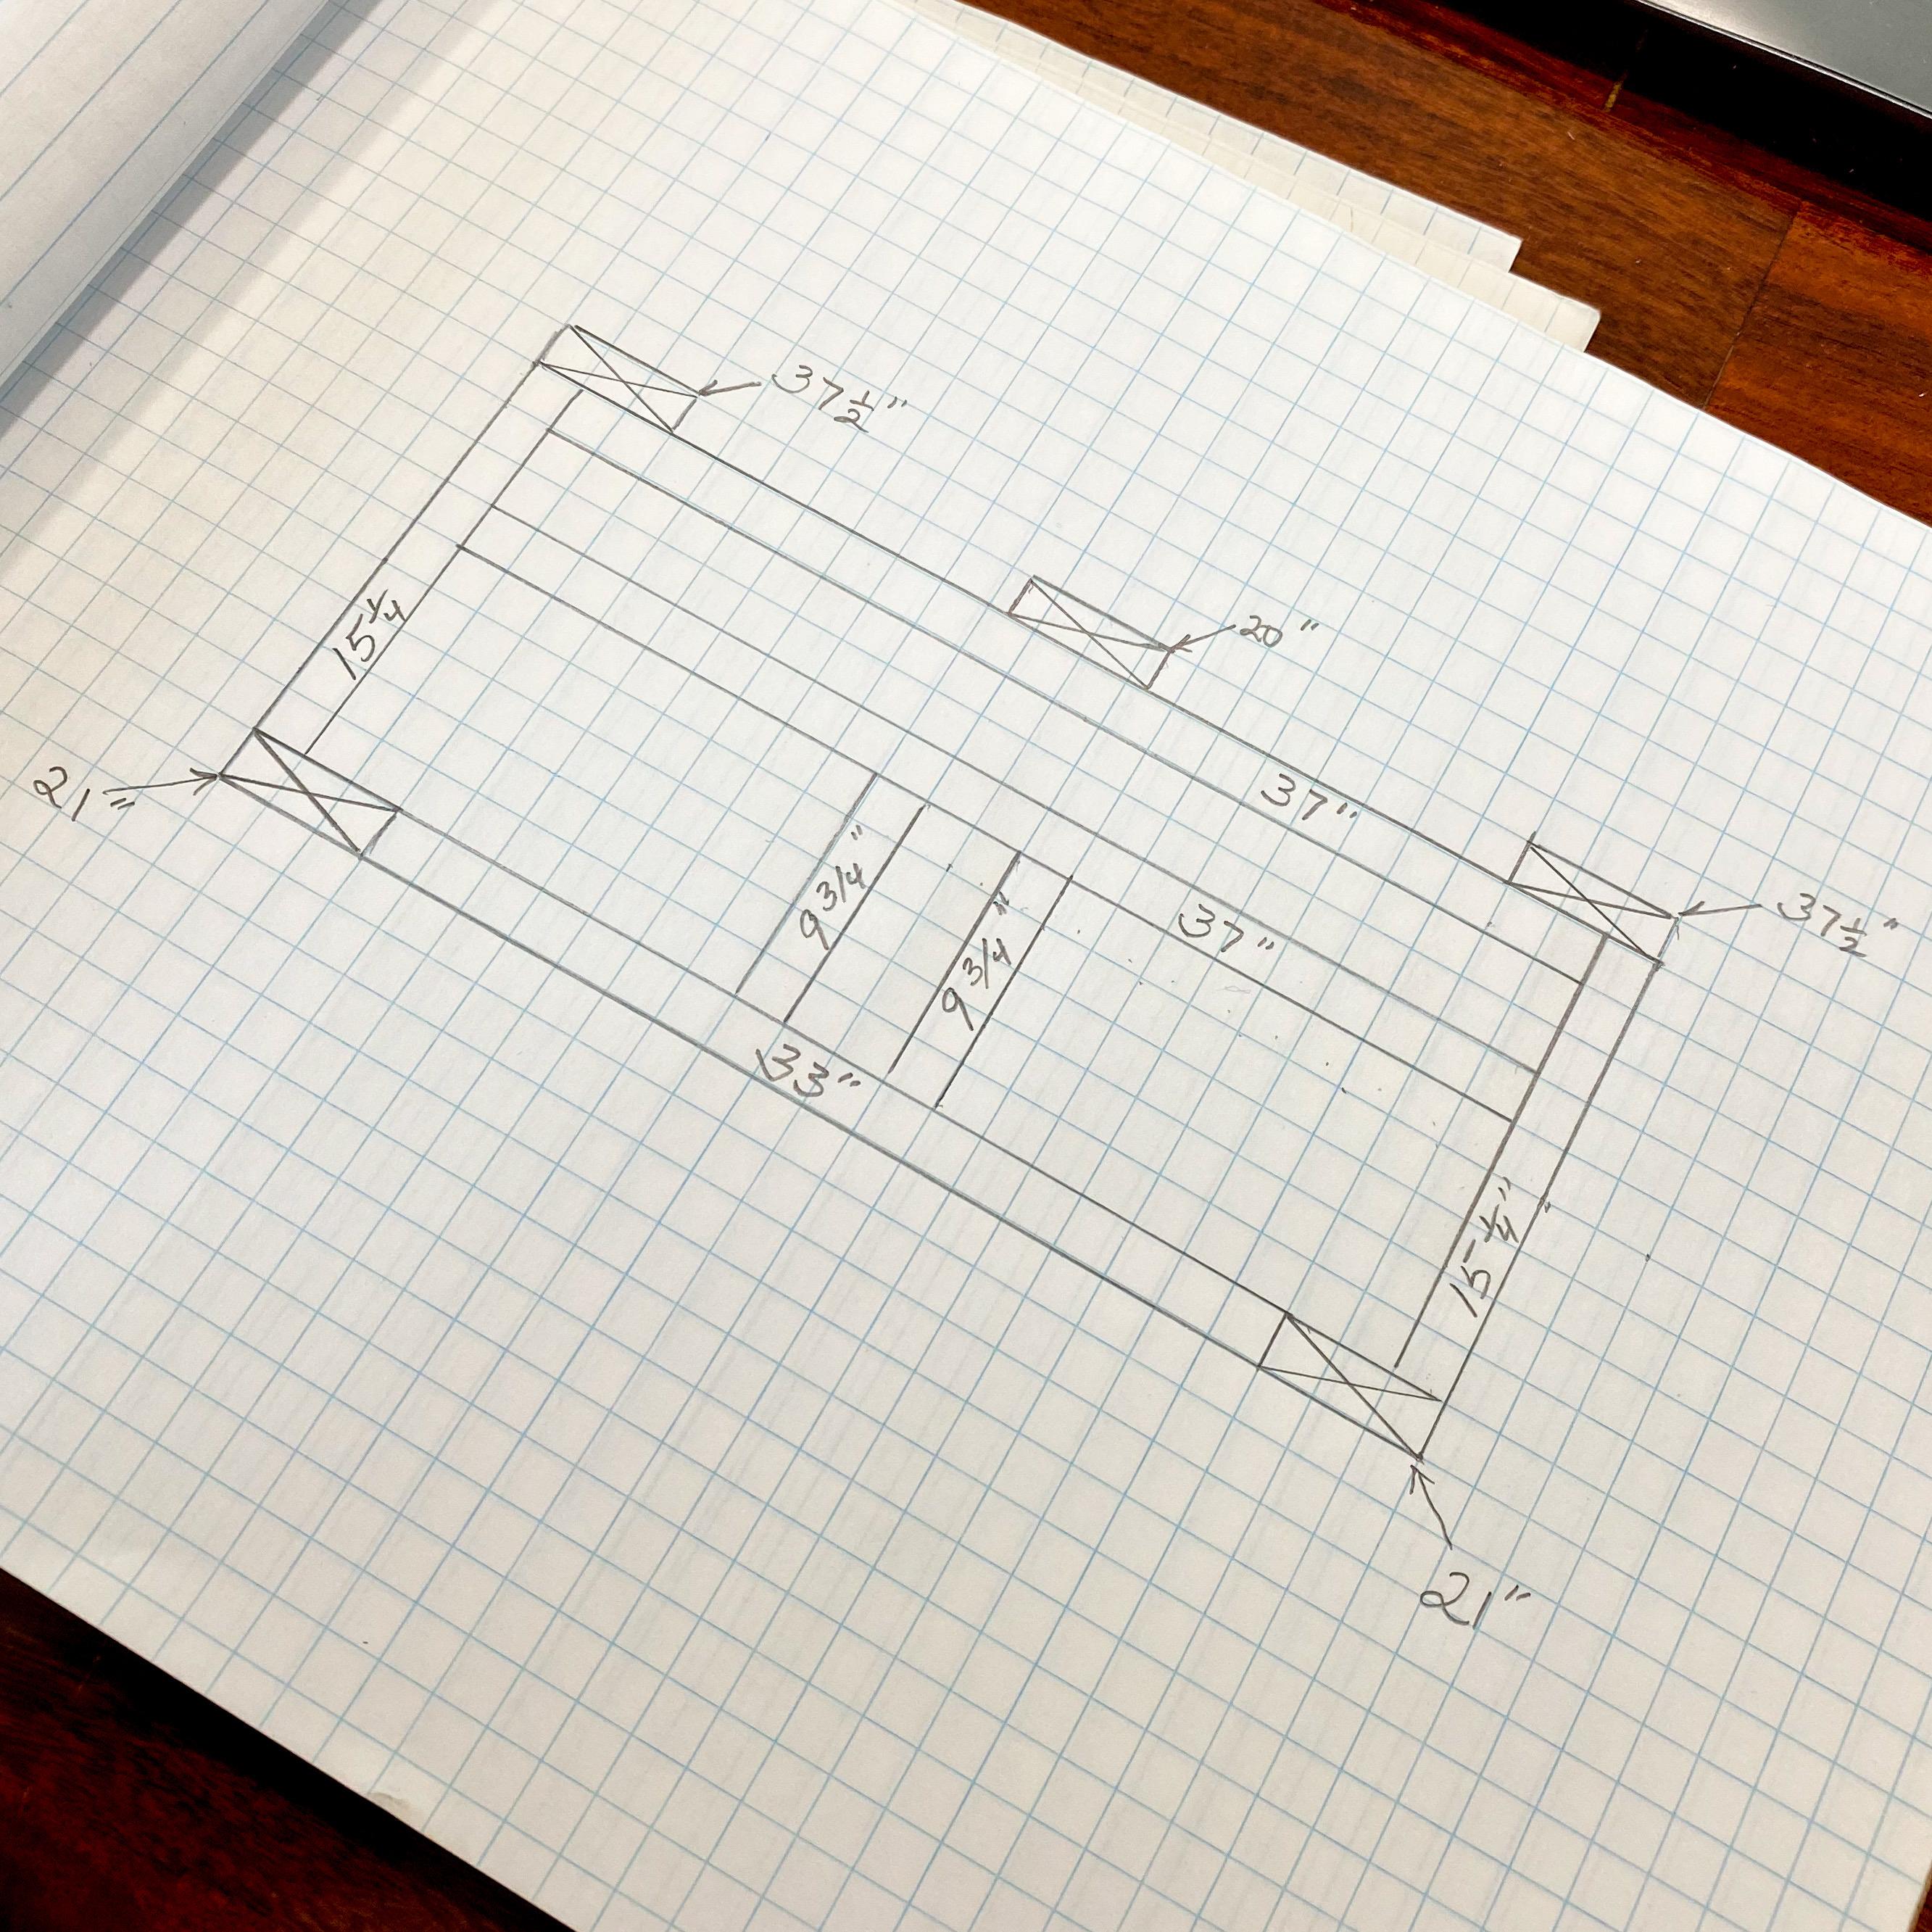 37 1/2"
20"
15 1/4
21"
37"
9 3/4"
37"
37 1/2"
9 3/4"
33"
15 1/4"
21"